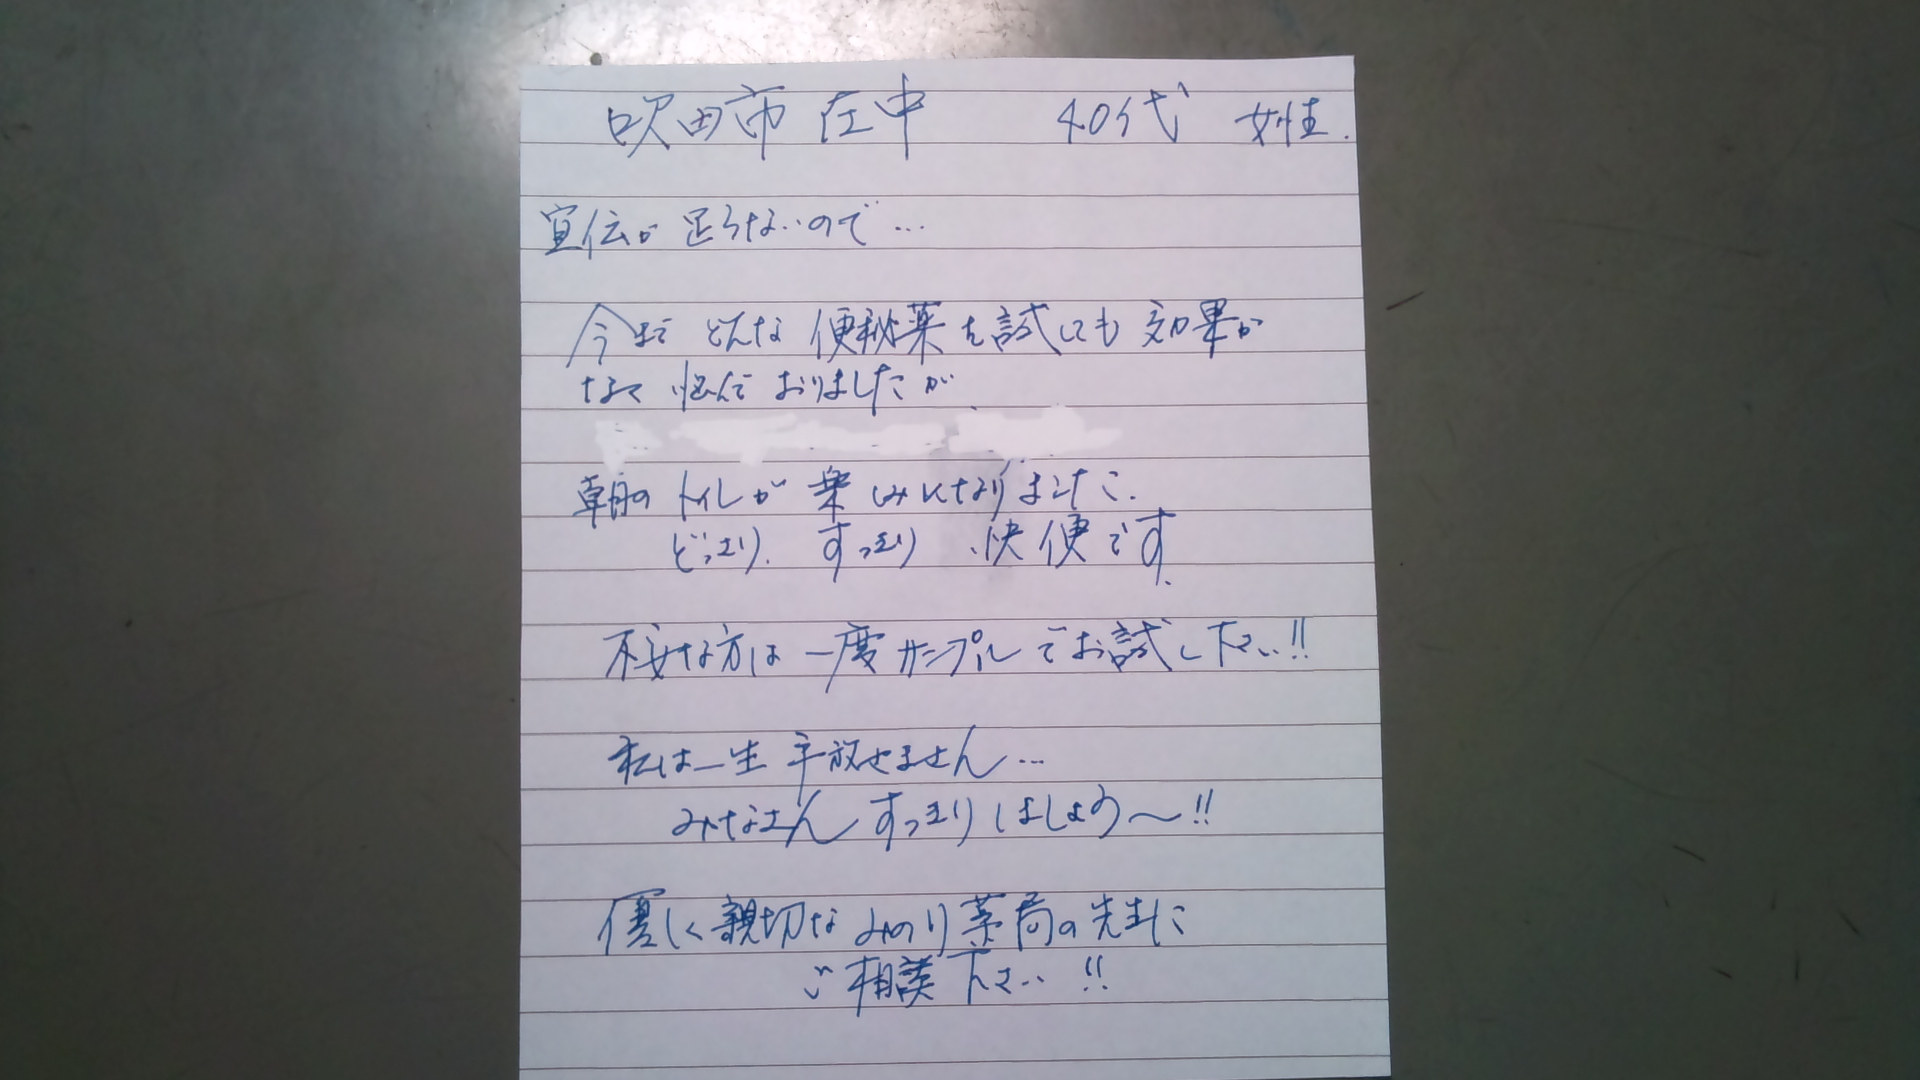 吹田市 在中 40代 女性.
宣伝が足らないので…
今まで どんな 便秘薬を試しても 効果が
なくて 悩んで おりましたが
朝の トイレが 楽しみになりました.
どっさり. すっきり 、快便です.
不安な方は 一度サンプルでお試し下さい!!
私は一生 手放せません…
みなさん すっきりしましょう〜!!
優しく親切な みのり薬局の先生に
ご相談下さい!!